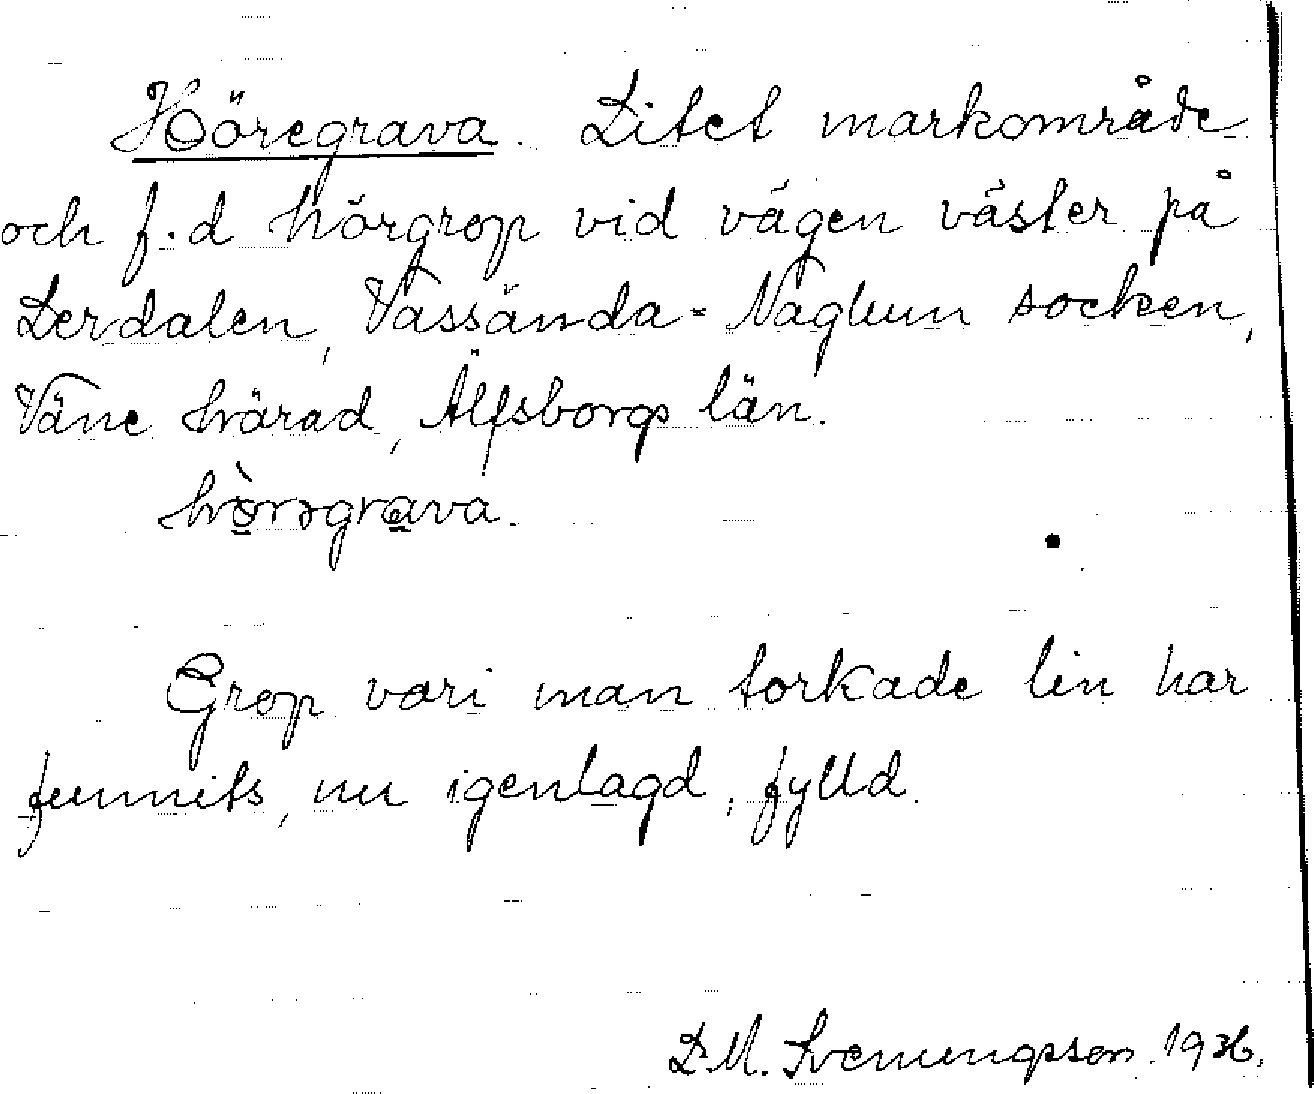 Höregrava. Litet markområde
och f.d hörgrop vid vägen väster på
Lerdalen, Vassända-Naglum socken,
Väne härad, Älfsborgs län.
hòrəgrava.
Grop vari man torkade lin har
funnits, nu igenlagd, fylld.
D.M. Svenungsson 1936.